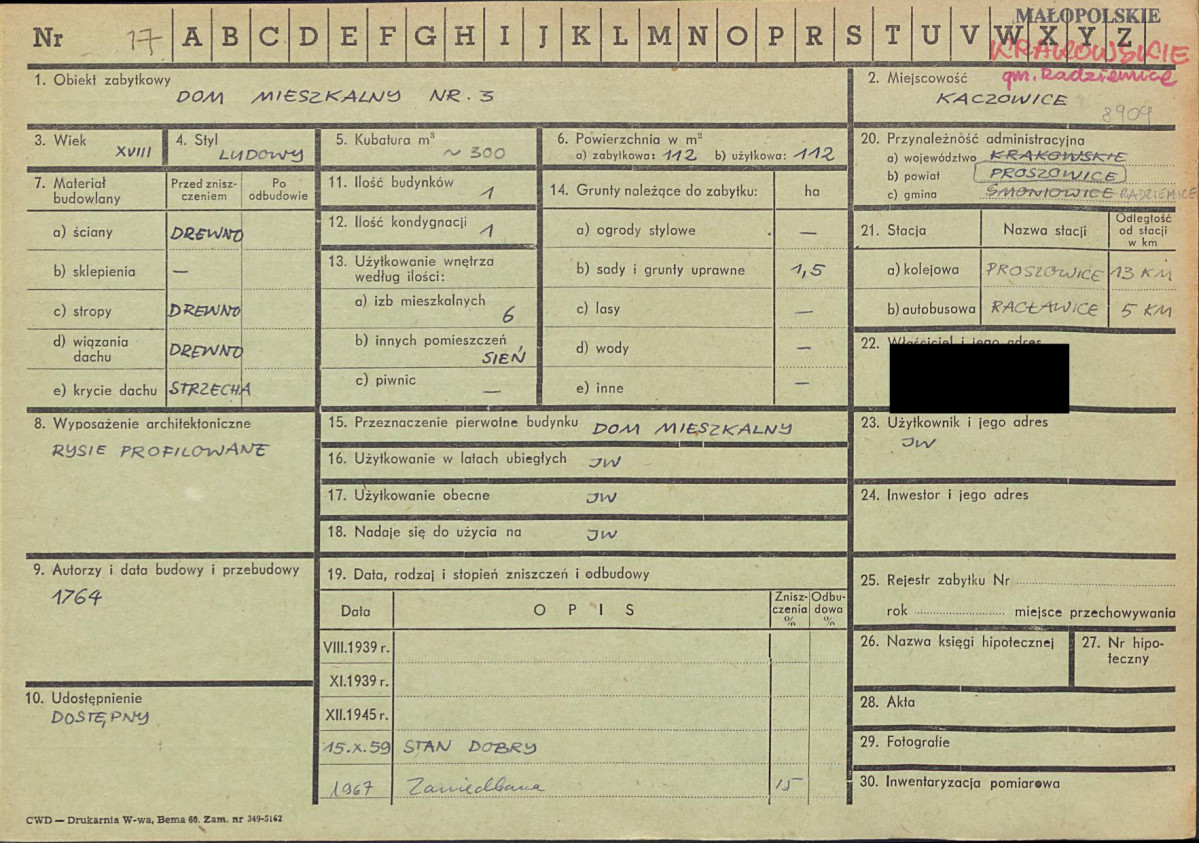 Nr 17 A B C D E F G H I J K L M N O P R S T U V W X Y Z
MAŁOPOLSKIE
KRAKOWSKIE
gm. Radziemice
1. Obiekt zabytkowy
DOM MIESZKALNY NR. 3
2. Miejscowość
KACZOWICE
8909
3. Wiek
XVIII
4. Styl
LUDOWY
5. Kubatura m³
~ 300
6. Powierzchnia w m²
a) zabytkowa: 112 b) użytkowa: 112
20. Przynależność administracyjna
a) województwo KRAKOWSKIE
b) powiat PROSZOWICE
c) gmina SMONIOWICE RADZIEMICE
7. Materiał budowlany
Przed znisz-
czeniem
Po
odbudowie
a) ściany DREWNO
b) sklepienia —
c) stropy DREWNO
d) wiązania
dachu DREWNO
e) krycie dachu STRZECHA
11. Ilość budynków 1
12. Ilość kondygnacji 1
13. Użytkowanie wnętrza
według ilości:
a) izb mieszkalnych
6
b) innych pomieszczeń
SIEŃ
c) piwnic —
14. Grunty należące do zabytku: ha
a) ogrody stylowe —
b) sady i grunty uprawne 1,5
c) lasy —
d) wody —
e) inne —
21. Stacja Nazwa stacji
Odległość
od stacji
w km
a) kolejowa PROSZOWICE 13 KM
b) autobusowa RACŁAWICE 5 KM
22. Właściciel i jego adres
8. Wyposażenie architektoniczne
RYSIE PROFILOWANE
15. Przeznaczenie pierwotne budynku DOM MIESZKALNY
16. Użytkowanie w latach ubiegłych JW
17. Użytkowanie obecne JW
18. Nadaje się do użycia na JW
23. Użytkownik i jego adres
JW
24. Inwestor i jego adres
9. Autorzy i data budowy i przebudowy
1764
19. Data, rodzaj i stopień zniszczeń i odbudowy
Data OPIS
Znisz-
czenia
%
Odbu-
dowa
%
VIII.1939 r.
XI.1939 r.
XII.1945 r.
15.X.59 STAN DOBRY
1967 Zaniedbana 15
10. Udostępnienie
DOSTĘPNY
25. Rejestr zabytku Nr
rok miejsce przechowywania
26. Nazwa księgi hipotecznej
27. Nr hipo-
teczny
28. Akta
29. Fotografie
30. Inwentaryzacja pomiarowa
CWD — Drukarnia W-wa, Bema 60. Zam. nr 349-5162